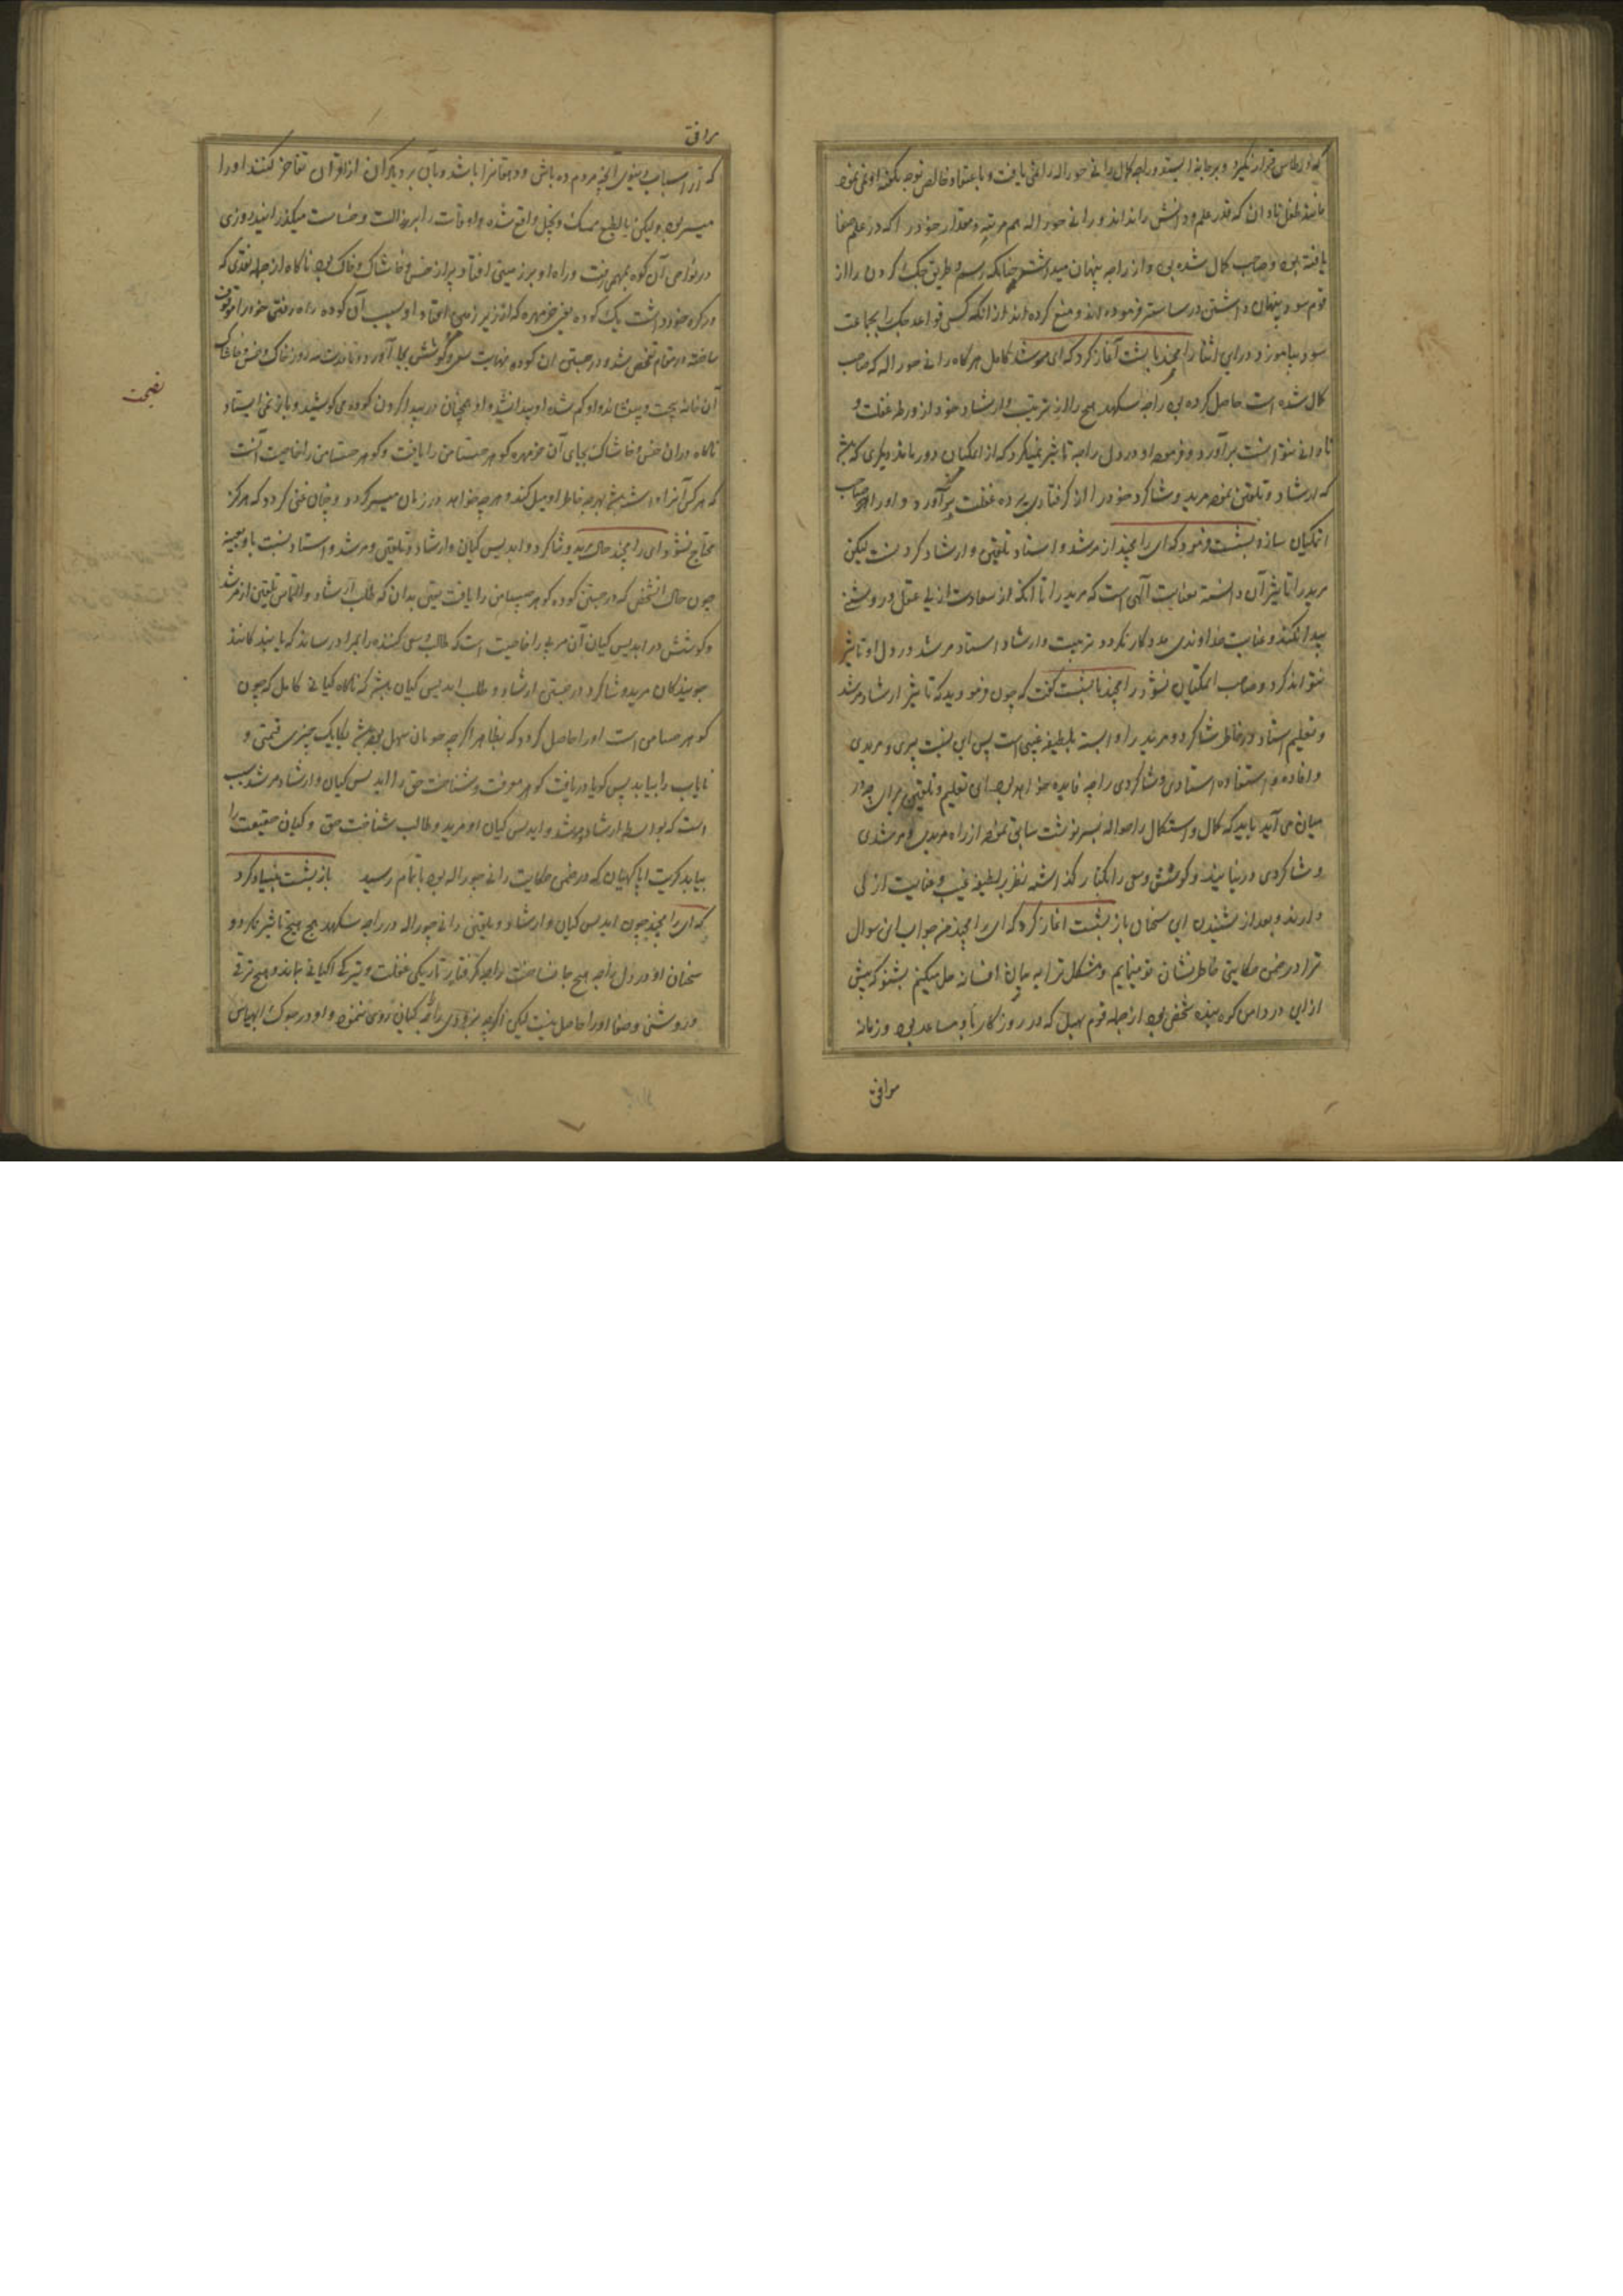 که او را قرار نگیرد و برجا نه ایستد و راجه کمال رانی چوراله را نمی یافت و با عتقاد خالص توجه بگفته او نمی نمود
مانند طفل نادان که قدر علم و دانش را نداند و رانی چوراله هم مرتبه و مقدار خود را که در علم صفا
یافته بود و صاحب کمال شده بود از راجه پنهان میداشت چنانکه رسم و طریق جک کردن را از
قوم سودر پنهان داشتن در ساستر فرموده اند و منع کرده اند از آنکه کسی قواعد جک را بجماعت
سودر بیاموزد درین اثنا رامچند با بشست آغاز کرد که ای مرشد کامل هرگاه رانی چوراله که صاحب
کمال شده است حاصل کرده بود راجه سکهدهج را از تربیت و ارشاد خود از ورطه غفلت و
نادانی نتوانست برآورد و فرموده او در دل راجه تاثیر نمیکرد که از اگیان دور ماند دیگری که
که ارشاد و تلقین نموده مرید و شاگرد خود را از گرفتاری پرده غفلت برآورد و او را صاحب
اتمگیان سازد بشست فرمود که ای رامچند از مرشد و استاد تلقین و ارشاد کردنست لیکن
مرید را تاثیر آن وابسته بعنایت الهی است که مرید را تا آنکه از سعادت ازلی عقل و روشنی
پیدا نکند و عنایت خداوندی مددکار نگردد تربیت و ارشاد استاد مرشد در دل او تاثیر
نتواند کرد و صاحب اتمگیان نشود رامچند با بشست گفت که چون فرمودید که تاثیر ارشاد مرشد
و تعلیم استاد در خاطر شاگرد و مرید را وابسته بلطیفه غیبی است پس این نسبت پیری و مریدی
و افاده و استفاده استادی و شاگردی را چه فایده خواهد بود و این تعلیم و تلقین برای چه در
میان می آید باید که کمال و استکمال را حواله بسرنوشت سابق نموده از راه مریدی و مرشدی
و شاگردی درنیایند و کوشش و سعی را بکنار گذاشته نظر بر لطیفه غیب و عنایت ازلی
دارند و بعد از شنیدن این سخنان باز بشست آغاز کرد که ای رامچند من جواب این سوال
ترا در ضمن حکایتی خاطرنشان تو مینمایم و مشکل ترا به بیان افسانه حل میکنم بشنو که پیش
ازین در دامن کوه بنده شخصی بود از جمله قوم بهیل که در روزگار با و مساعد بود و زمانه
موافق
موافق
که از اسباب دنیوی آنچه مردم ده باش و دهقانرا باشد و بآن بر دیگران از اقران تفاخر کنند او را
میسر بود ولیکن بالطبع ممسک و بخیل واقع شده و اوقات را برذالت و خساست میگذرانید روزی
در نواحی آن کوه بمهمی رفت و راه او بر زمینی افتاد پر از خس و خاشاک و خاک بود ناگاه از جمله نقدی که
در گره خود داشت یک کوده یعنی خرمهره که از زیر زمین افتاد او بسبب آن کوده راه رفتن خود را موقوف
ساخته در مقام تفحص شد و در جستن آن کوده نهایت سعی و کوشش بجا آورد و تا مدت سه روز خاک و خس و خاشاک
آن خانه بیخت و پیشانه و او گم شده او پیدا نشد و او همچنان در پیدا کردن کوده می کوشید و باز نمی ایستاد
ناگاه در آن خس و خاشاک بجای آن خرمهره گوهر چنتامن را یافت و گوهر چنتامن را خاصیت آنست
که هر کس آنرا داشته باشد هرچه خاطر او میل کند و هرچه خواهد در زمان میسر گردد و چنان غنی گردد که هرگز
محتاج نشود ای رامچند حال مرید و شاگرد و اپدیس گیان و ارشاد و تلقین مرشد و استاد نسبت باو بعینه
چون حال آن شخص که در جستن کوده گوهر چنتامن را یافت یقین بدان که طلب ارشاد و التماس تلقین از مرشد
و کوشش در اپدیس گیان آن مرید را خاصیت است که طالب و سعی کننده را بمراد رساند که یابنده کانند
جویندگان مرید و شاگرد در جستن ارشاد و طلب اپدیس گیان باشد که ناگاه گیانی کامل که چون
گوهر چنتامن است او را حاصل گردد که بظاهر اگرچه جویان سهل بوده باشد بیکایک چیزی قیمتی و
نایاب را بیابد پس گویا دریافت گوهر معرفت و شناخت حق را اپدیس گیان و ارشاد مرشد سبب
است که بواسطه ارشاد مرشد و اپدیس گیان او مرید و طالب شناخت حق و گیان حقیقت را
بیابد کریت اپاکهیان که در ضمن حکایت رانی چوراله بود باتمام رسید باز بشست بنیاد کرد
که ای رامچند چون اپدیس گیان و ارشاد و تلقین رانی چوراله در راجه سکهدهج هیچ تاثیر نکرد و
سخنان او در دل راجه هیچ جا نساخت راجه گرفتار تاریکی غفلت و تیرگی اگیانی بماند و هیچ ترقی
و روشنی و صفا او را حاصل نیست لیکن اگرچه راجه گیان روی ننمود و او در سلوک
نصیحت